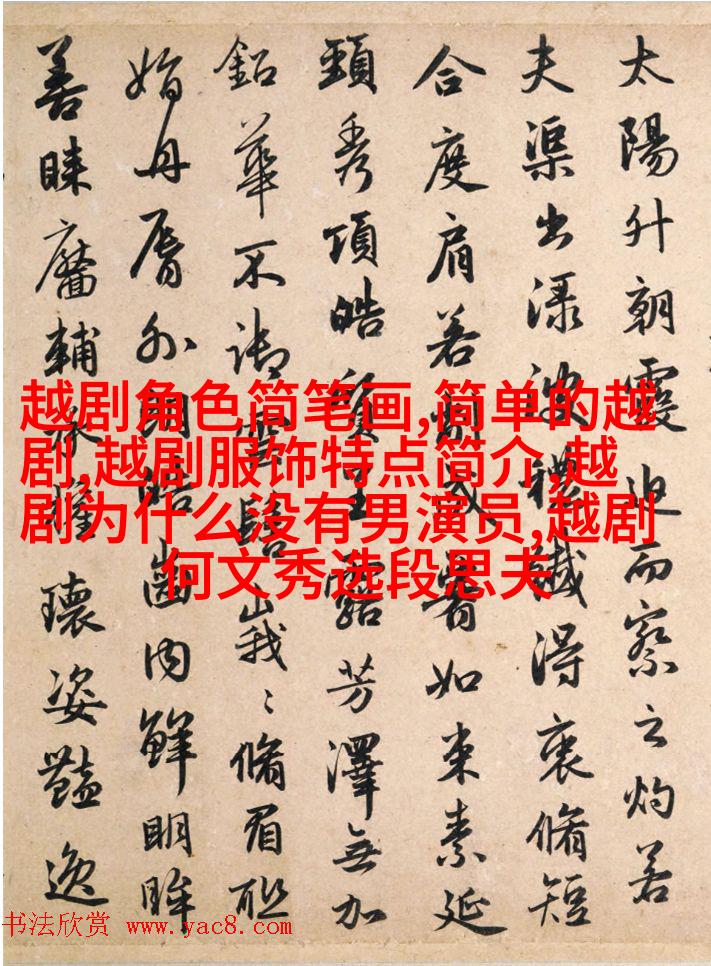 太陽升朝霞迫而察之灼若
夫渠出渌波襛纖得衷脩短
合度肩若削成如束素延
頸秀項皓質呈露芳澤無加
鉛華不御雲髻峩〻脩眉聯
娟丹脣外朗皓齒内鮮明眸
善睞靨輔承權瓌姿豔逸
越剧角色简笔画,简单的越
剧,越剧服饰特点简介,越
剧为什么没有男演员,越剧
何文秀选段思夫
书法欣赏 www.yac8.com